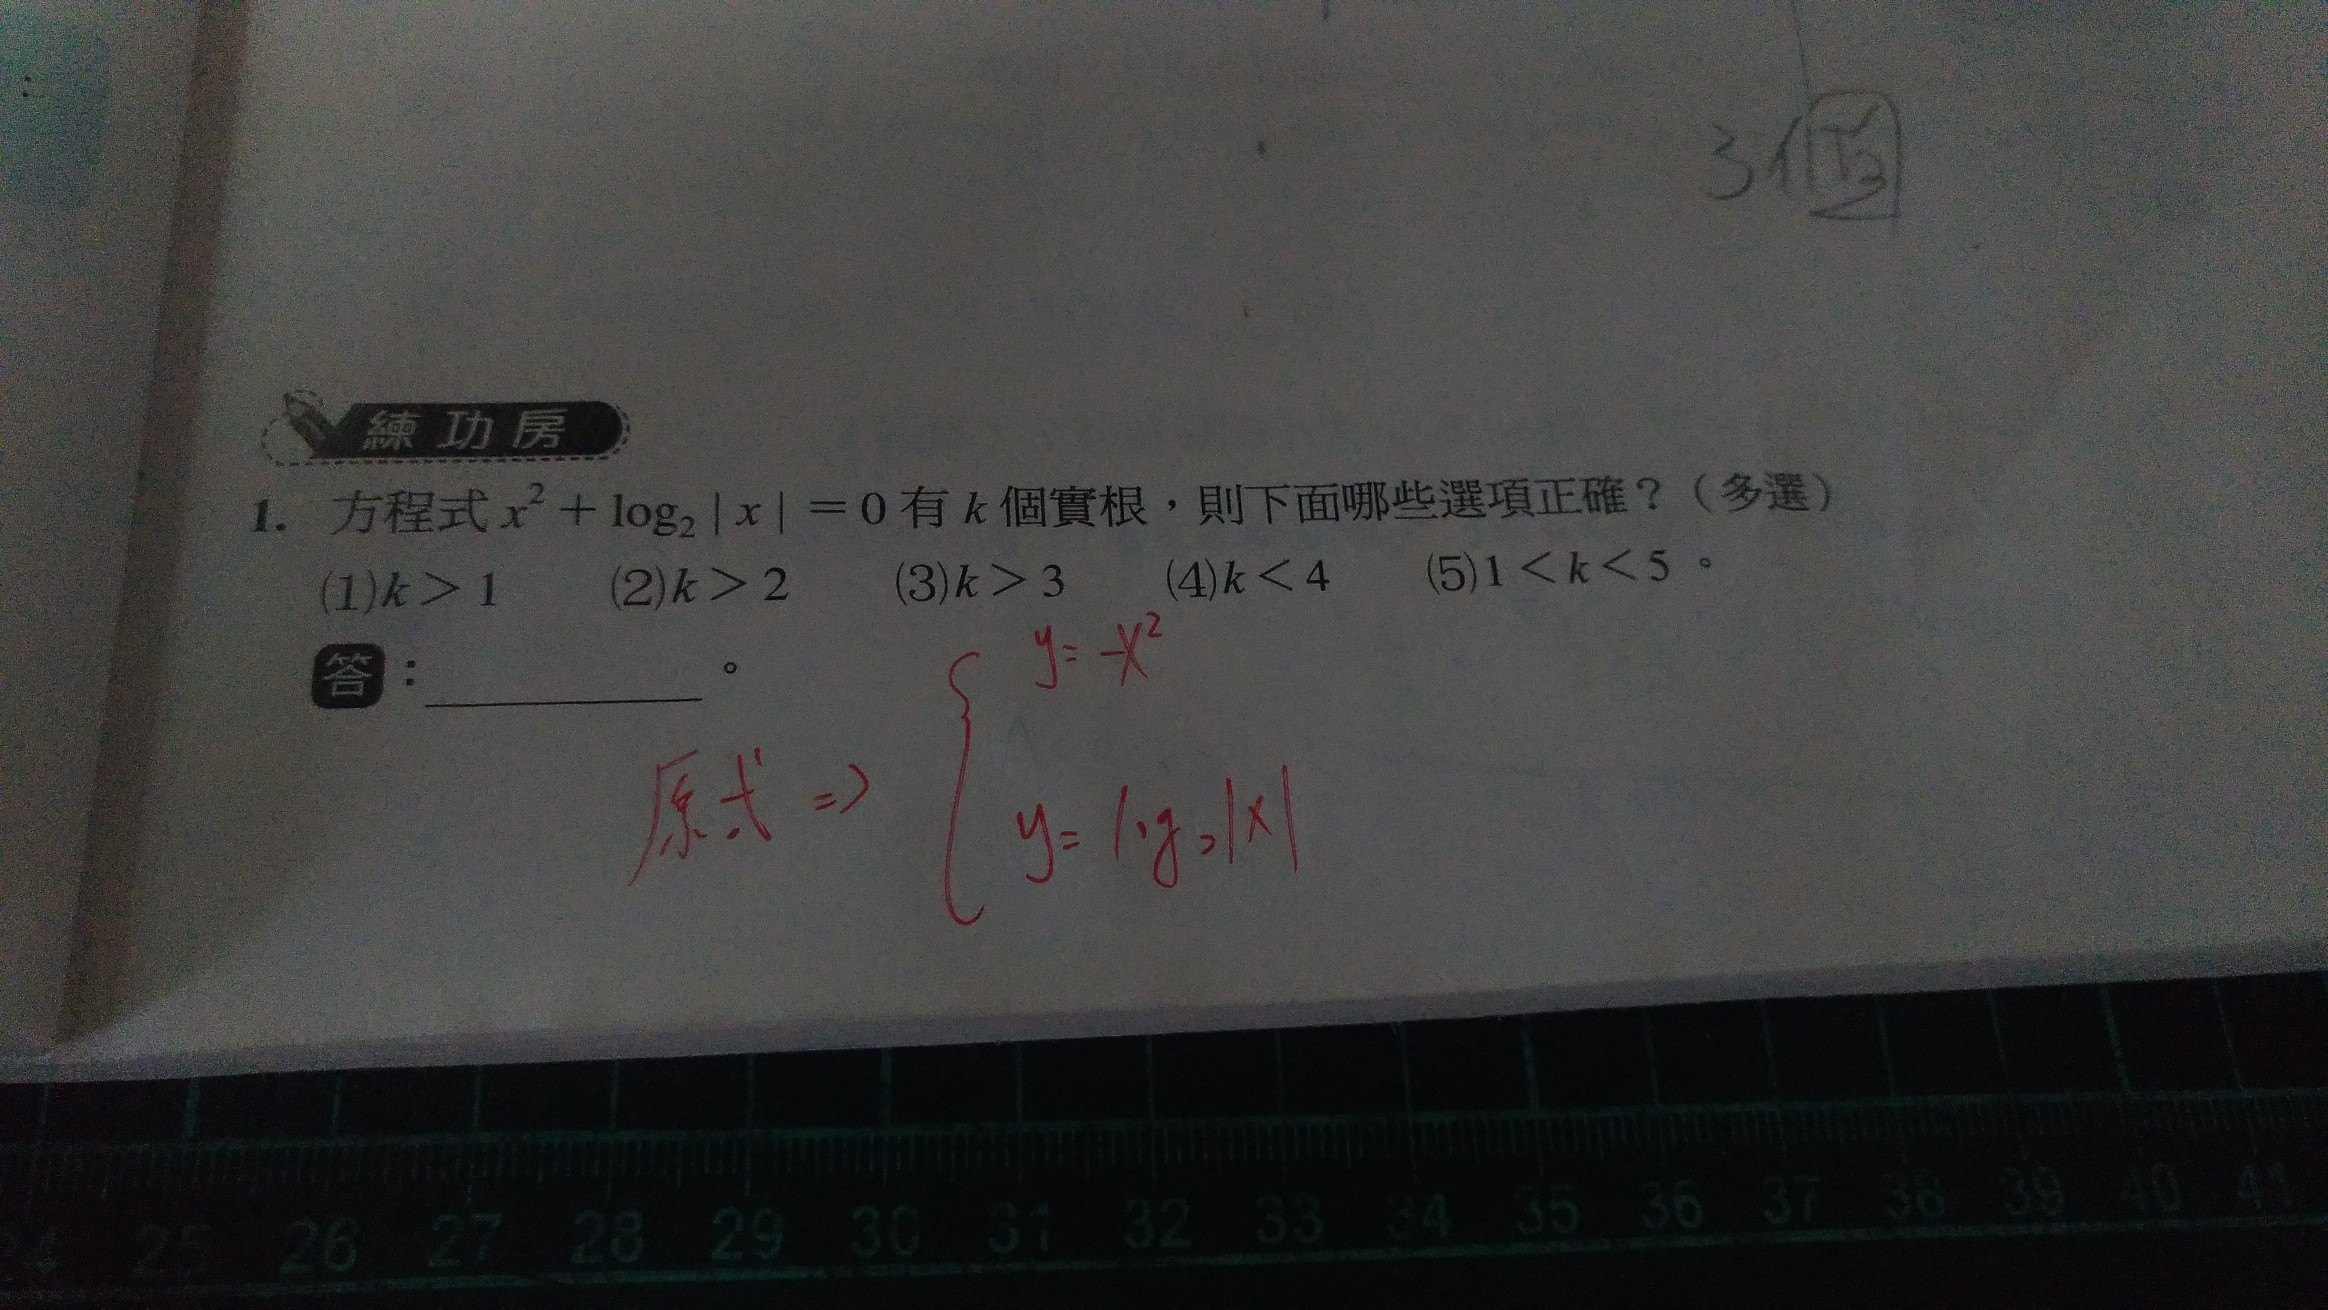 3個
練功房
1. 方程式 x² + log₂ | x | = 0 有 k 個實根，則下面哪些選項正確？（多選）
(1)k > 1 (2)k > 2 (3)k > 3 (4)k < 4 (5)1 < k < 5 。
答：＿＿＿＿＿。
y = -x²
原式 =>
y = log₂|x|
24 25 26 27 28 29 30 31 32 33 34 35 36 37 38 39 40 41